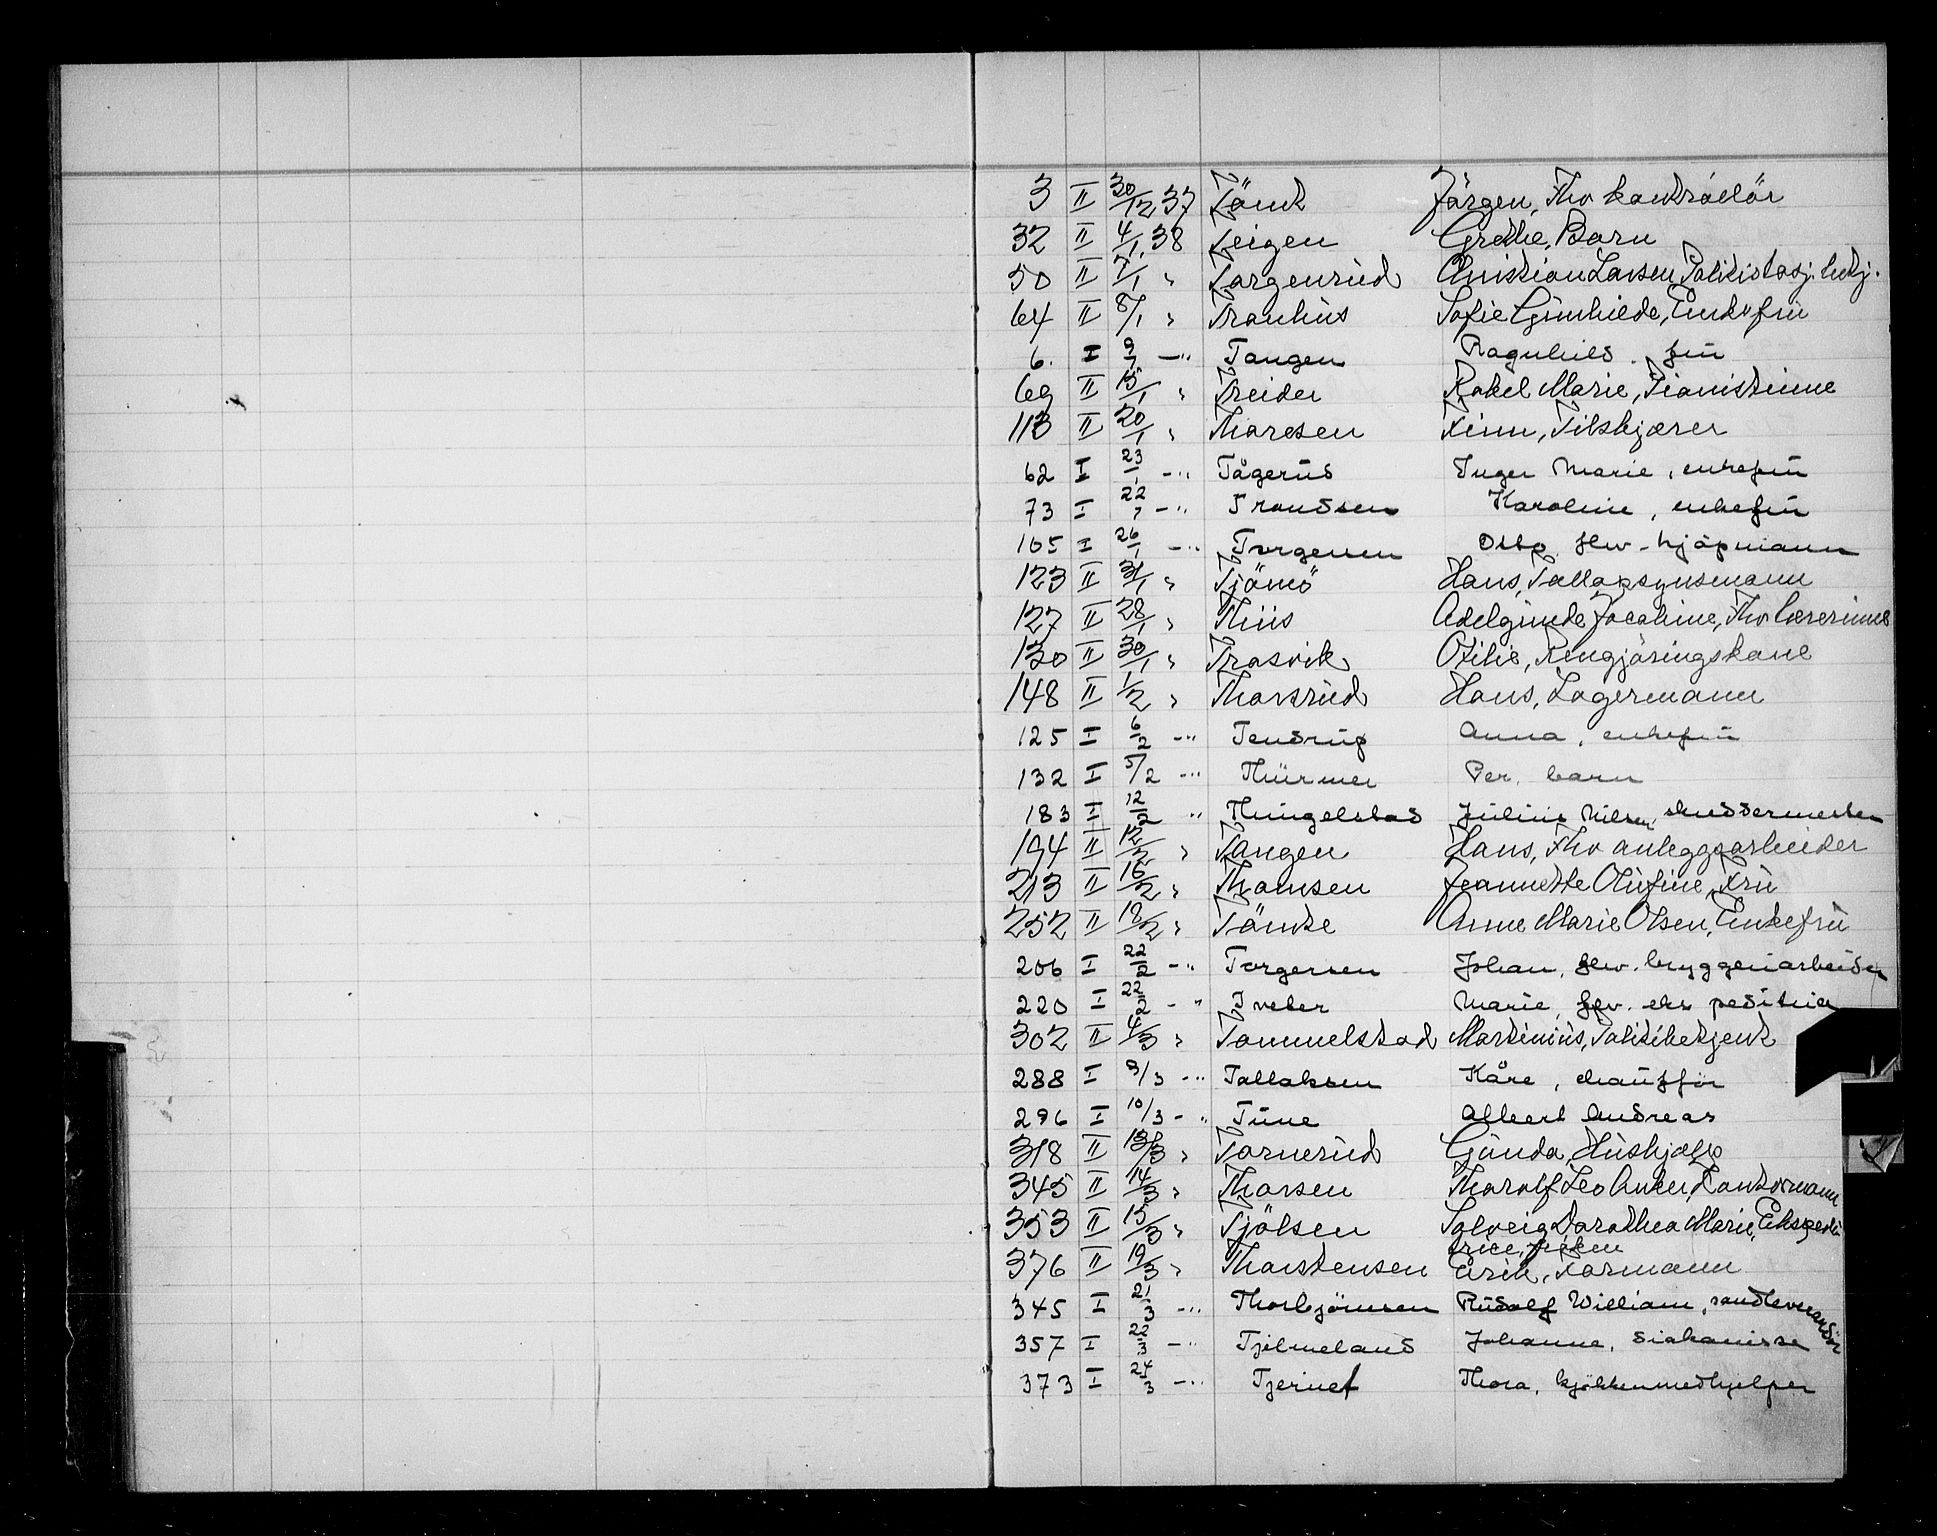 3 II 30/12 37 Tönk Jörgen, Fhv kontrollör
32 II 4/1 38 Teigen Grethe, Barn
50 II 7/1 " Torgersrud Christian Larsen, Politistasj. betj.
64 II 8/1 " Tronhus Sofie Gunhilde, Enkefru
6. I 9/1 -" Tangen Ragnhild. fru
69 II 15/1 " Treider Rakel Marie, Pianistinne
113 II 20/1 " Thoresen Finn, Filskjærer
62 I 23/1 -" Tågerud Inger Marie, enkefru
73 I 22/1 -" Trondsen Karoline, enkefru
105 I 26/1 -" Torgersen Otto, fhv. kjöpmann
123 II 31/1 " Tjömö Hans, Tolloppsynsmann
127 II 28/1 " Thiis Adelgunde Jocobine, Fhv lærerinne
130 II 30/1 " Trasvik Otilie, Rengjöringskone
148 II 1/2 " Thorsrud Hans, Lagermann
125 I 6/2 -" Tendrup Anna, enkefru
132 I 5/2 -" Thürmer Per, barn
183 I 12/2 " Thingelstad Julius Nilsen, skreddermester
194 II 12/2 " Tangen Hans, Fhv anleggsarbeider
213 II 16/2 " Thomsen Jeannette Olufine, Fru
252 II 19/2 " Tömte Anne Marie Olsen, Enkefru
206 I 22/2 -" Torgersen Johan, fhv. bryggeriarbeider
220 I 22/2 -" Tveter Marie, fhv. ekspeditrice
302 II 4/3 " Tommelstad Martinius, Politibetjent
288 I 9/3 -" Tollaksen Kåre, chaufför
296 I 10/3 -" Tune Albert Andreas
318 II 13/3 " Tornerud Gunda, Hushjelp
345 II 14/3 " Thorsen Thorolf Leo Anker, Kontormann
353 II 15/3 " Tjölsen Solveig Dorothea Marie, Ekspedi-
trice, fröken
376 II 19/3 " Thorstensen Erik, Formann
345 I 21/3 -" Thorbjörnsen Rudolf William, sandleverandör
357 I 22/3 -" Tjelmeland Johanne, diakonisse
373 I 24/3 -" Tjernet Thora, kjökkenmedhjelper